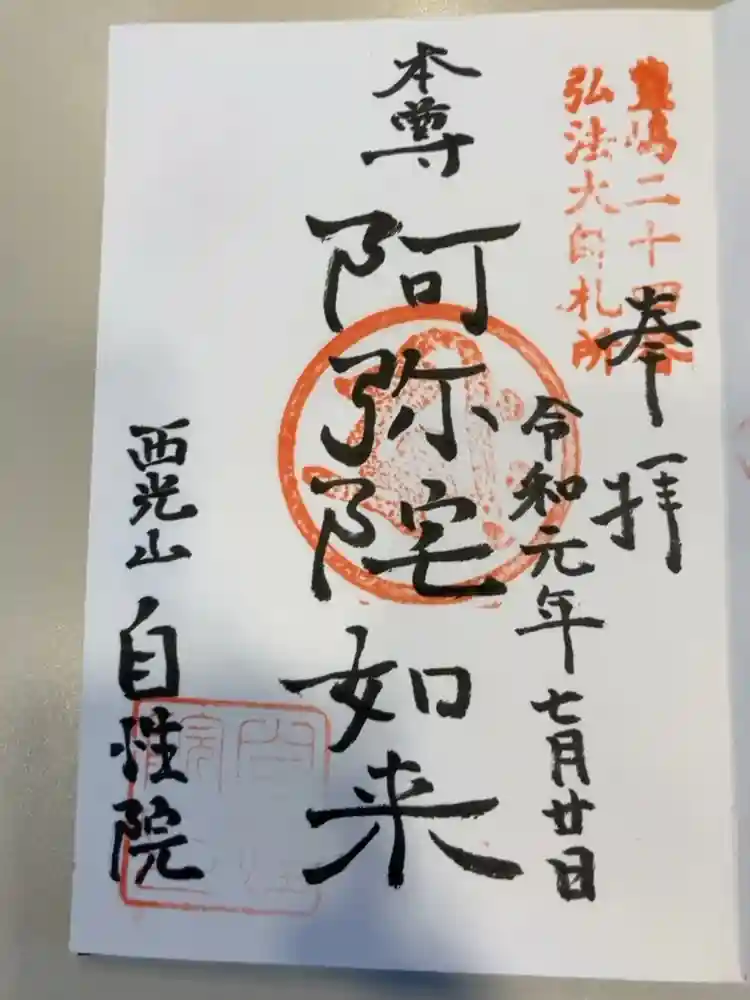 豊嶋二十四番
弘法大師札所
奉拝
令和元年七月廿日
本尊
阿弥陀如来
西光山自性院